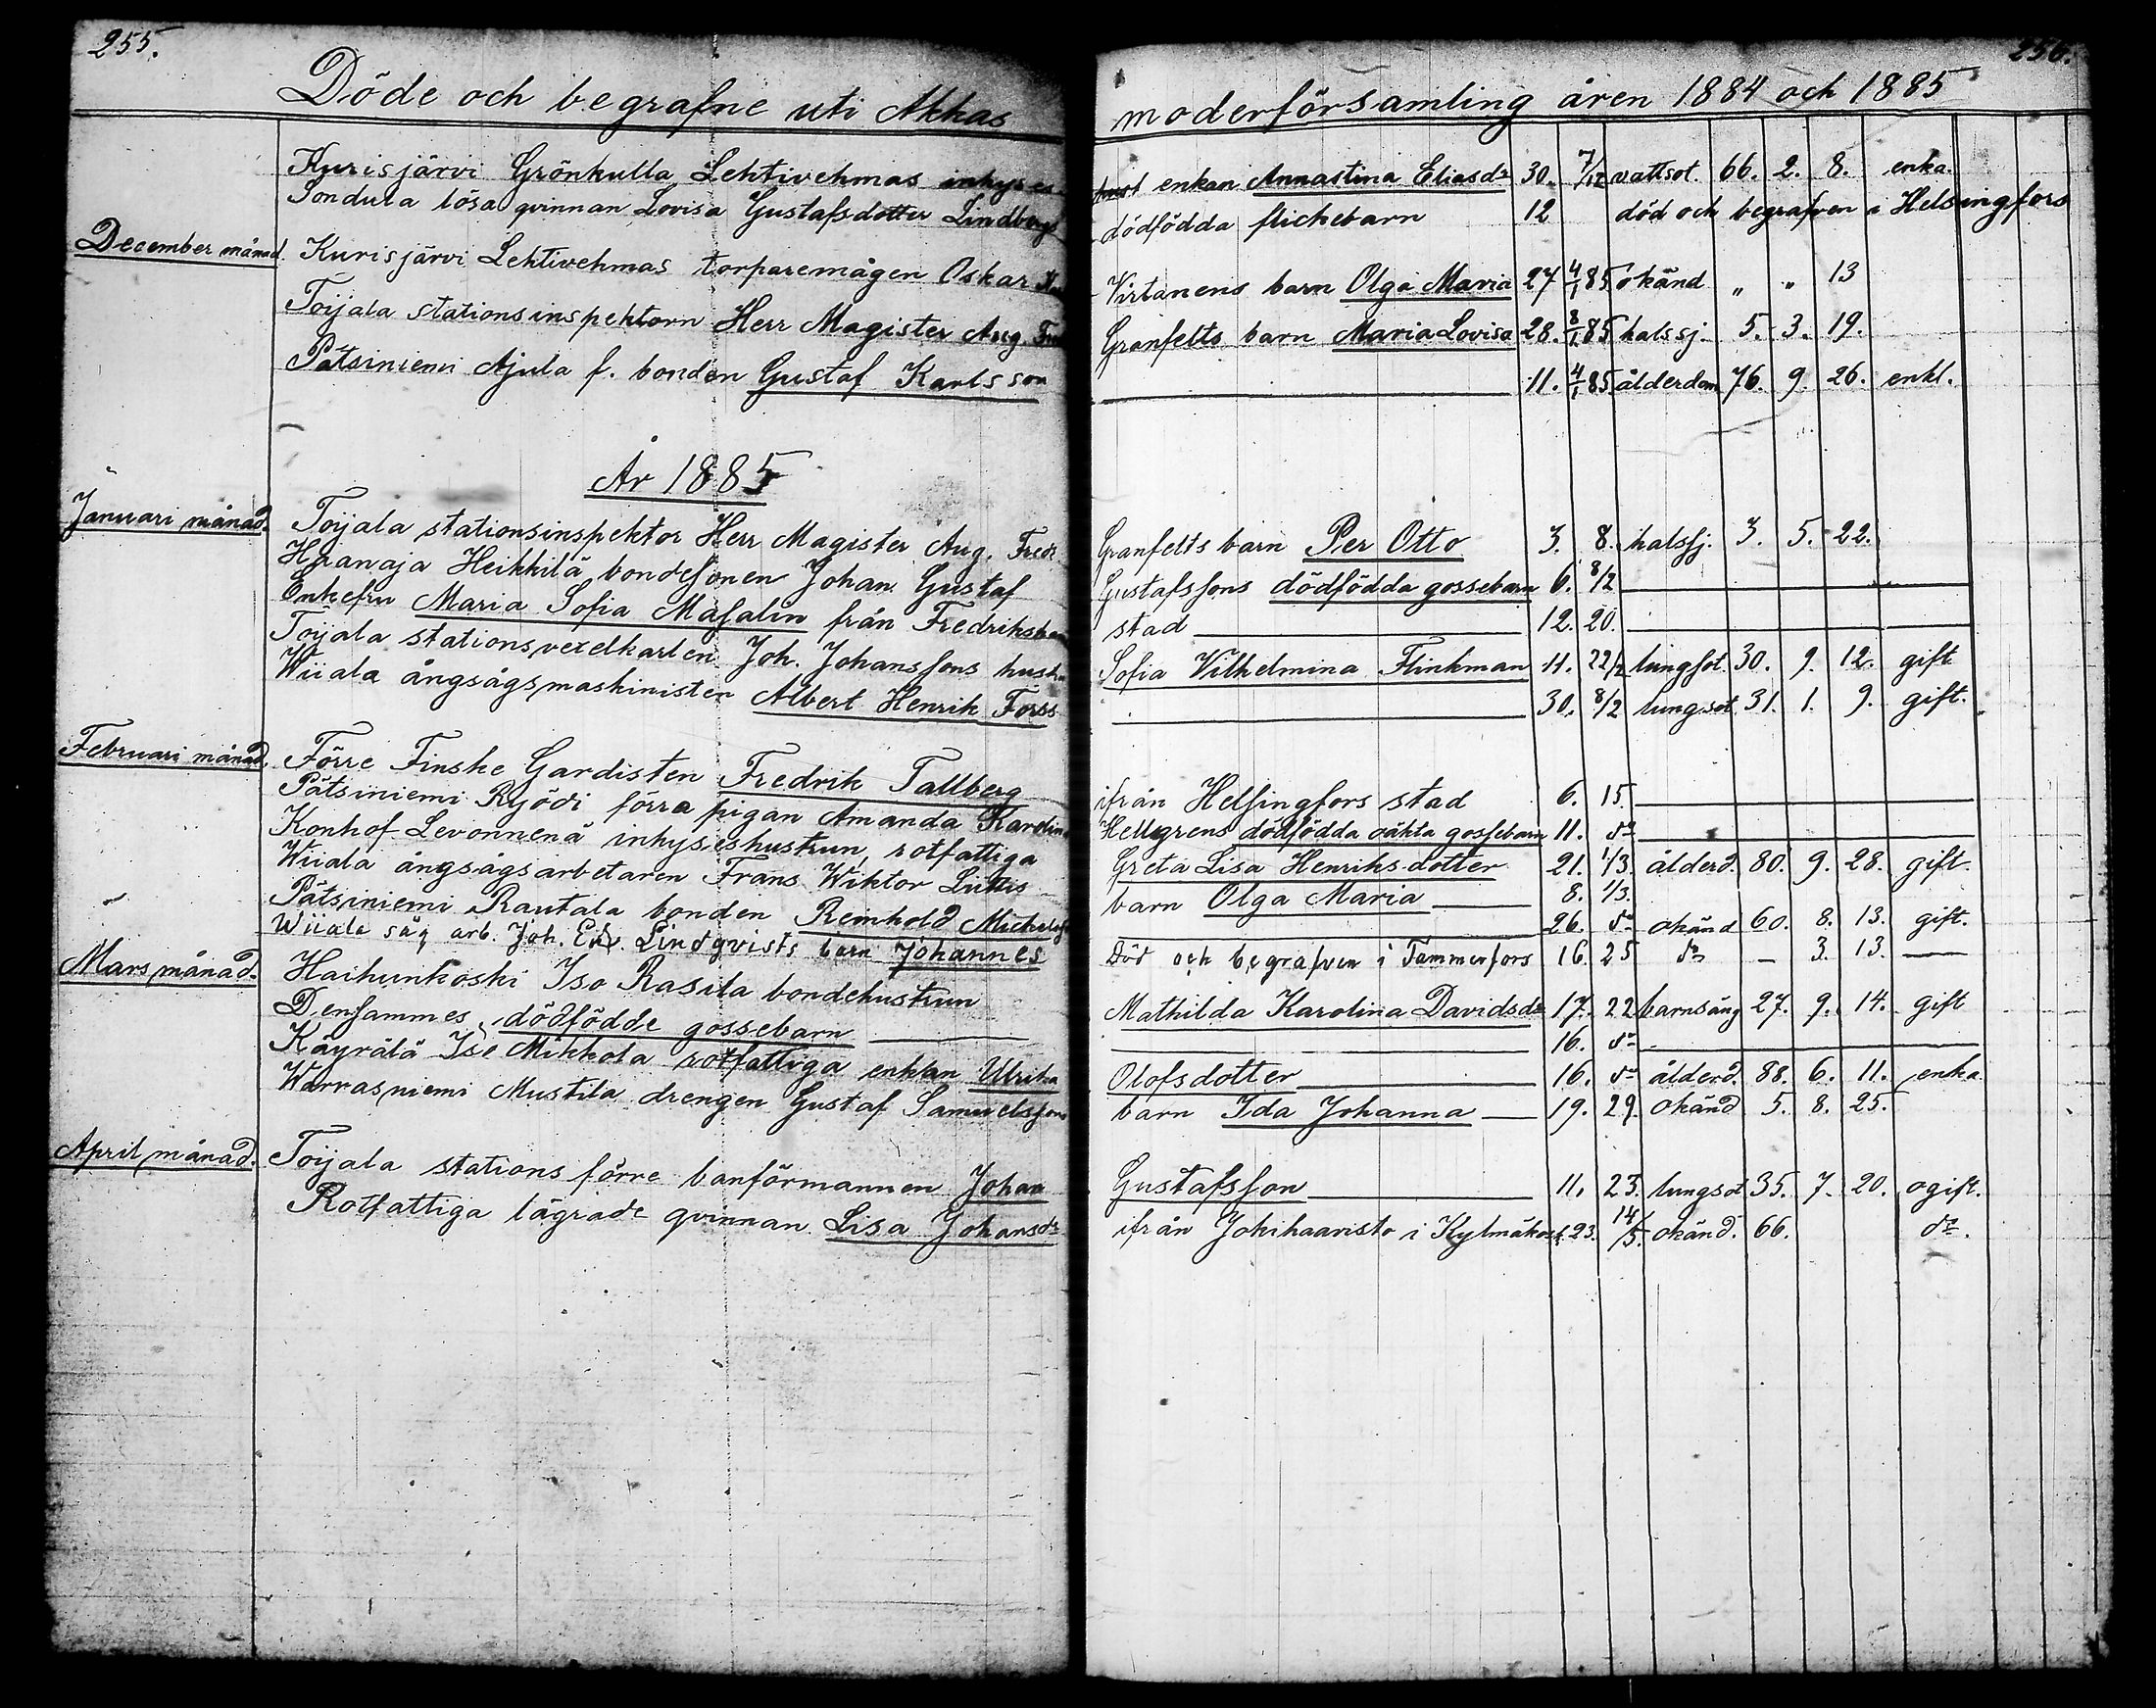 255.
256.
Döde och begrafne uti Akkas moderförsamling åren 1884 och 1885
Kurisjärvi Grönkulla Lehtivehmas inhyses enkan Annastina Eliasdr 30. 7/12 vattsot. 66. 2. 8. enka.
Sondula lösa qvinnan Lovisa Gustafsdotter Lindbergs dödfödda flickebarn 12 död och begrafven i Helsingfors
December månad. Kurisjärvi Lehtivehmas torparemågen Oskar Virtanens barn Olga Maria 27 4/1 85 okänd " " 13
Toijala stationsinspektorn Herr Magister Aug. Granfelts barn Maria Lovisa 28. 8/1 85 halssj. 5. 3. 19.
Pätsiniemi Ajula f. bonden Gustaf Karlsson 11. 4/1 85 ålderdom 76. 9. 26. enkl.
År 1885
Januari månad. Toijala stationsinspektor Herr Magister Aug. Fredr. Granfelts barn Per Otto 3. 8. halssj. 3. 5. 22.
Hranaja Heikkilä bondesonen Johan Gustaf Gustafssons dödfödda gossebarn 6. 8/2
Enkefru Maria Sofia Masalin från Fredrikshamns stad 12. 20.
Toijala stationsvexelkarlen Joh. Johanssons hustru Sofia Vilhelmina Flinkman 11. 22/2 lungsot. 30. 9. 12. gift
Wiiala ångsågsmaskinisten Albert Henrik Forss 30. 8/2 lungsot 31. 1. 9. gift.
Februari månad. Förre Finske Gardisten Fredrik Tallberg ifrån Helsingfors stad 6. 15.
Pätsiniemi Ryödi förra pigan Amanda Karolina Hellgrens dödfödda oäkta gossebarn 11. do
Konhof Levonnenä inhyseshustrun, rotfattiga Greta Lisa Henriksdotter 21. 1/3. ålderd. 80. 9. 28. gift.
Wiiala ångsågsarbetaren Frans Wiktor barn Olga Maria 8. 1/3.
Pätsiniemi Rautala bonden Reinhold Michelss 26. do okänd 60. 8. 13. gift.
Wiiala såg arb. Joh. Edv. Lindqvists barn Johannes Död och begrafven i Tammerfors 16. 25 do — 3. 13. —
Mars månad. Haihunkoski Iso Rasila bondehustrun Mathilda Karolina Davidsdr 17. 22 barnsäng 27. 9. 14. gift
Densammes dödfödde gossebarn 16. do
Käyrälä Iso Mikkola rotfattiga enkan Ulrika Olofsdotter 16. do ålderd. 88. 6. 11. enka
Warrasniemi Mustila drengen Gustaf Samuelssons barn Ida Johanna 19. 29. okänd 5. 8. 25.
April månad. Toijala stations förre banförmannen Johan Gustafsson 11. 23. lungsot 35. 7. 20. ogift.
Rotfattiga lägrade qvinnan Lisa Johansdr ifrån Jokihaavisto i Kylmäkosk. 23. 14/5. okänd. 66. do.